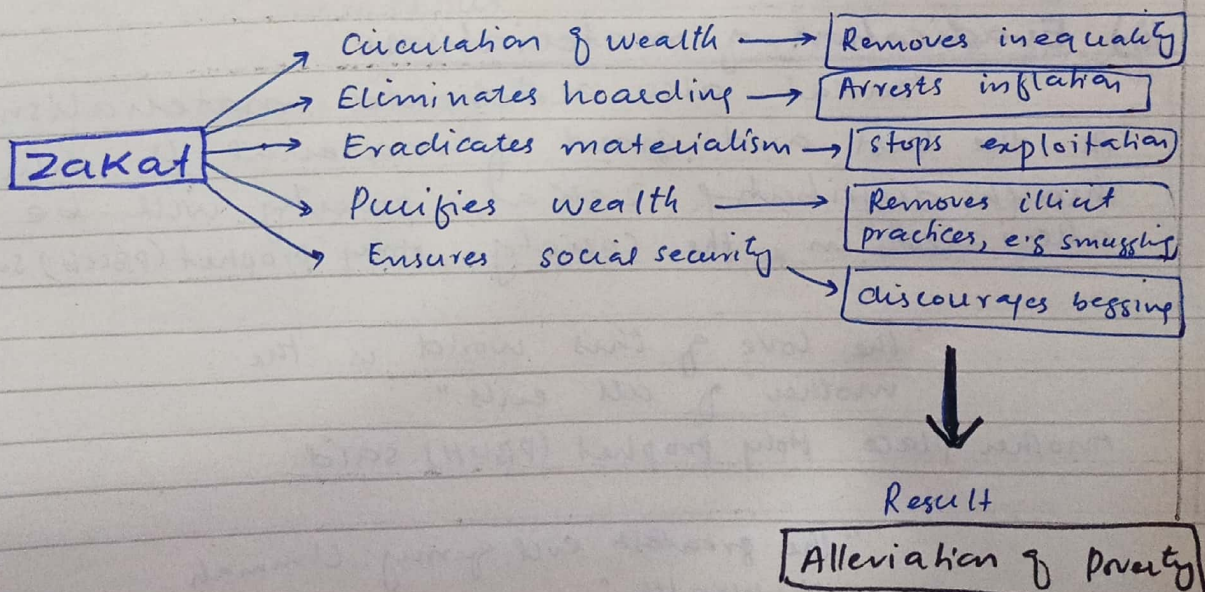 Circulation of wealth → Removes inequality
Eliminates hoarding → Arrests inflation
Zakat
Eradicates materialism → Stops exploitation
Purifies wealth → Removes illicit
practices, e.g smuggling
Ensures social security → discourages begging
Result
Alleviation of Poverty